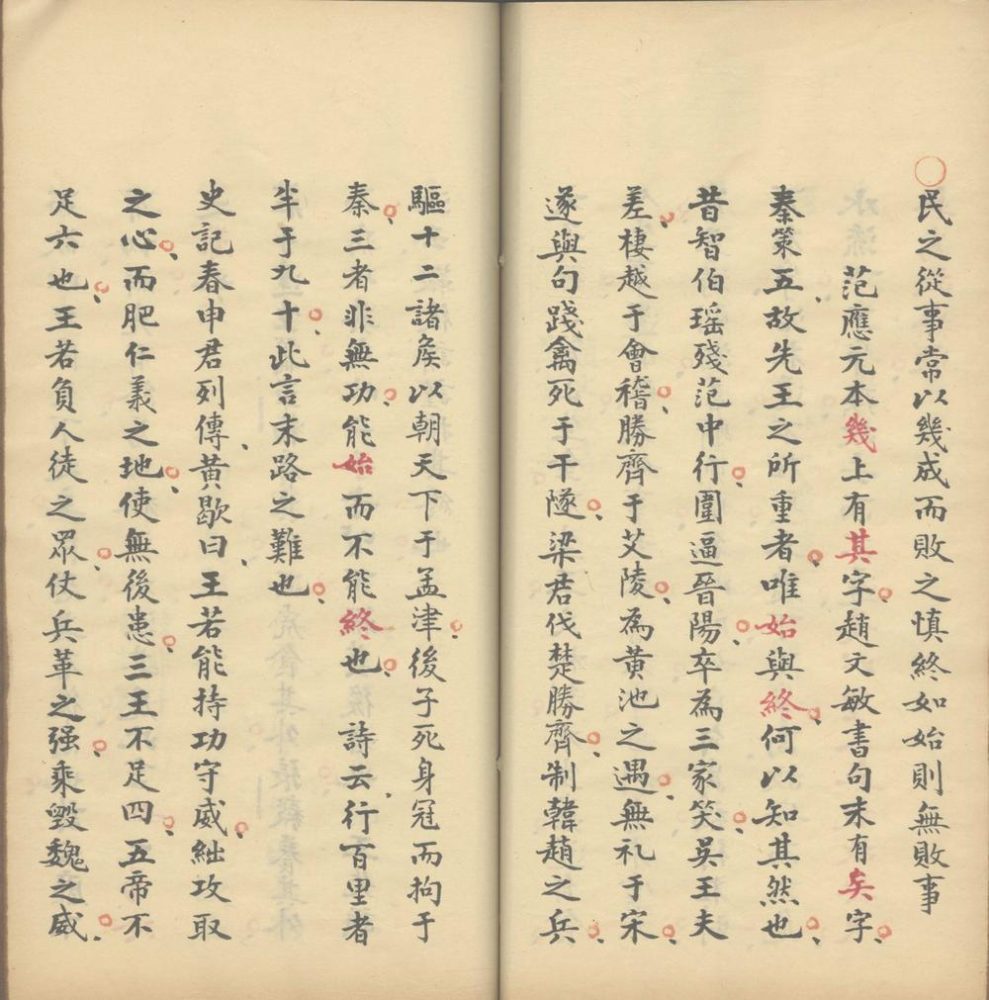 民之從事常以幾成而敗之慎終如始則無敗事
范應元本幾上有其字趙文敏書句末有矣字
秦策五故先王之所重者唯始與終何以知其然也
昔智伯瑶殘范中行圍逼晉陽卒為三家笑吳王夫
差棲越于會稽勝齊于艾陵為黃池之遇無礼于宋
遂與句踐禽死于干隧梁君伐楚勝齊制韓趙之兵
驅十二諸矦以朝天下于孟津後子死身冠而拘于
秦三者非無功能始而不能終也詩云行百里者
半于九十此言末路之難也
史記春申君列傳黃歇曰王若能持功守威絀攻取
之心而肥仁義之地使無後患三王不足四五帝不
足六也王若負人徒之眾仗兵革之强乘毀魏之威